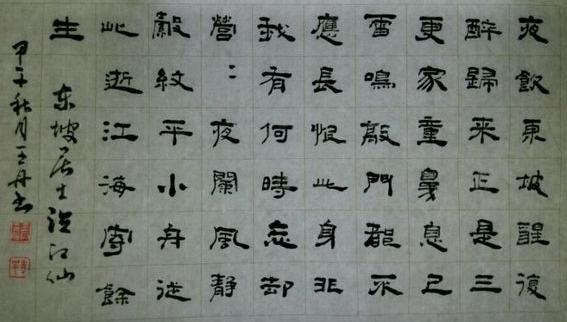 夜飲東坡醒復
醉歸來正是三
更家童鼻息已
雷鳴敲門都不
應長恨此身非
我有何時忘却
營〻夜闌風靜
縠紋平小舟從
此逝江海寄餘
生
东坡居士臨江仙
甲午秋月王丹书